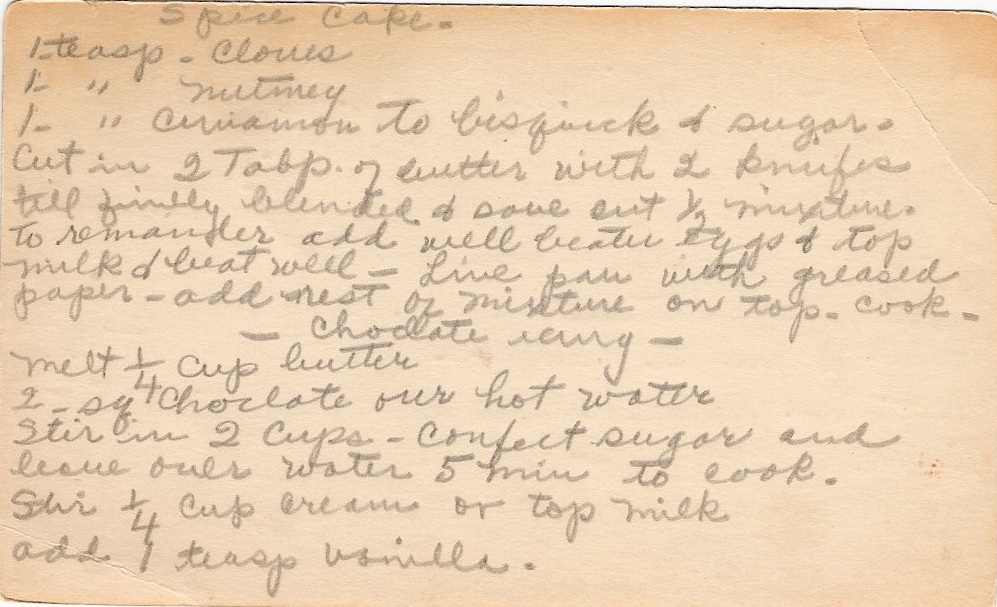 Spice Cake.
1-teasp - Cloves
1- " nutmeg
1- " Cinnamon to bisquick & sugar.
Cut in 2 Tabp. of butter with 2 knifes
till finely blended & save out ½ mixture.
To remander add well beaten eggs & top
milk & beat well - Line pan with greased
paper - add rest of mixture on top. cook -
- Choclate icing -
melt ¼ cup butter
2 - sq Choclate over hot water
Stir in 2 Cups - Confect sugar and
leave over water 5 min to cook.
Stir ¼ cup cream or top milk
add 1 teasp vanilla.